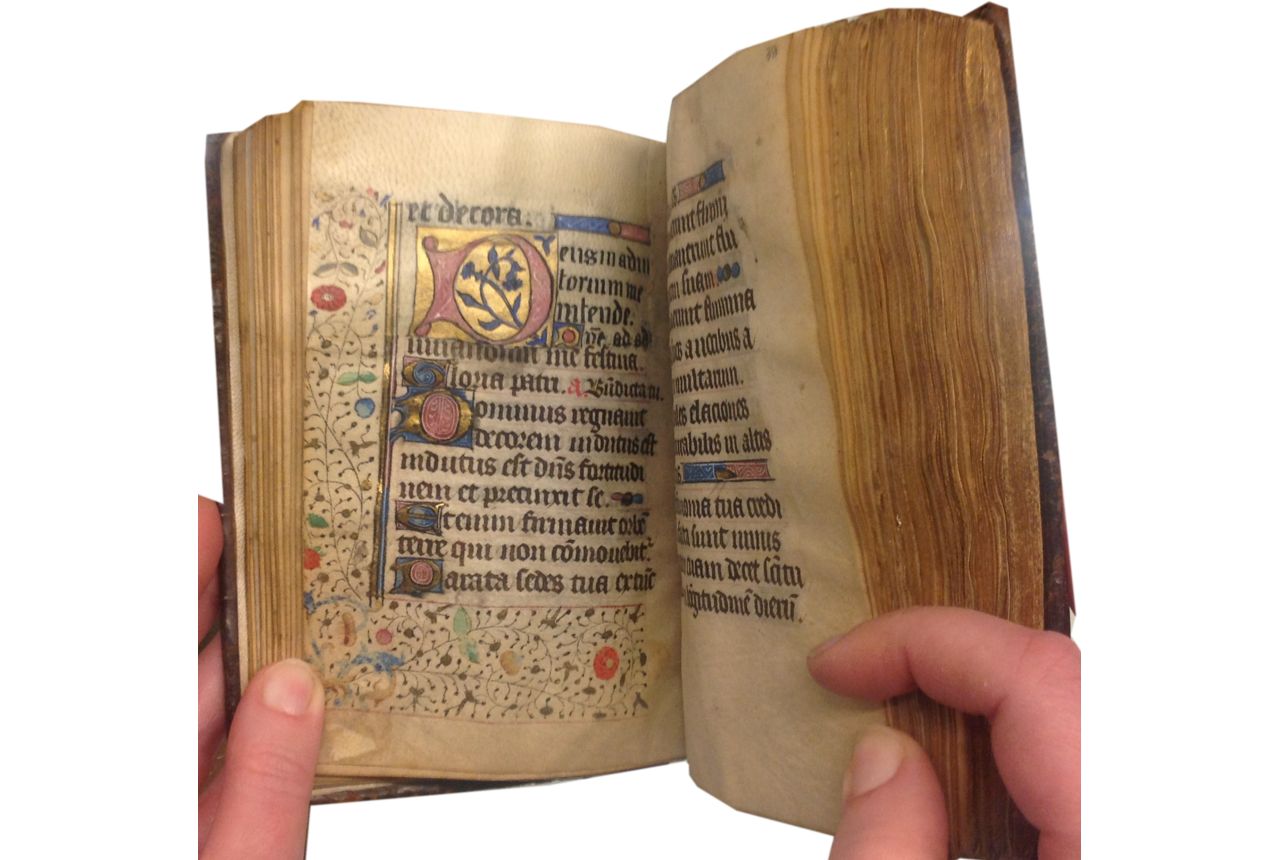 et decora.
Deus in adiu
torium me
intende.
Dñe ad ad
iuuandum me festina.
Gloria patri. a. Bñdicta tu.
Dominus regnauit
decorem indutus est
indutus est dñs fortitudi
nem et precinxit se.
Etenim firmauit orbē
terre qui non cōmouebit᷑.
Parata sedes tua ex tūc
runt flumī
uauerunt flu
m suam
runt flumina
es a uocibus a
multarum.
iles elaciones
irabilis in altis
monia tua credi
facta sunt nimis
tuam decet sc̄itu
lōgitudinē dierū.